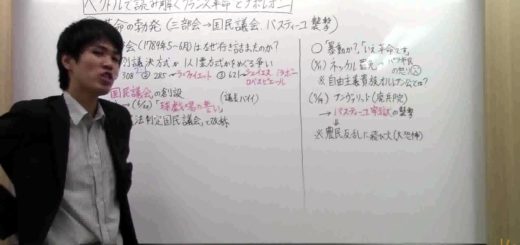 ベクトルで読み解くフランス革命とナポレオン
革命の勃発(三部会→国民議会、バスティーユ襲撃)
会(1789年5~6月)はなぜ行き詰またのか?
議決方式が1人1票方式かをめぐる争い
308 ② 285→ラ=ファイエット ③ 621→シェイエス、ミラボー
ロベスピエール
国民議会の創設
(議長バイイ)
→(6/20)「球戯場の誓い」
憲法制定国民議会」と改称
○「暴動か?」「いえ革命です。」
(7/11) ネッケル罷免→パリ市民の怒り
※自由主義貴族オルレアン公とは?
(7/14) アンヴァリッド(廃兵院)
→バスティーユ牢獄の襲撃
※農民反乱に飛び火(大恐怖)